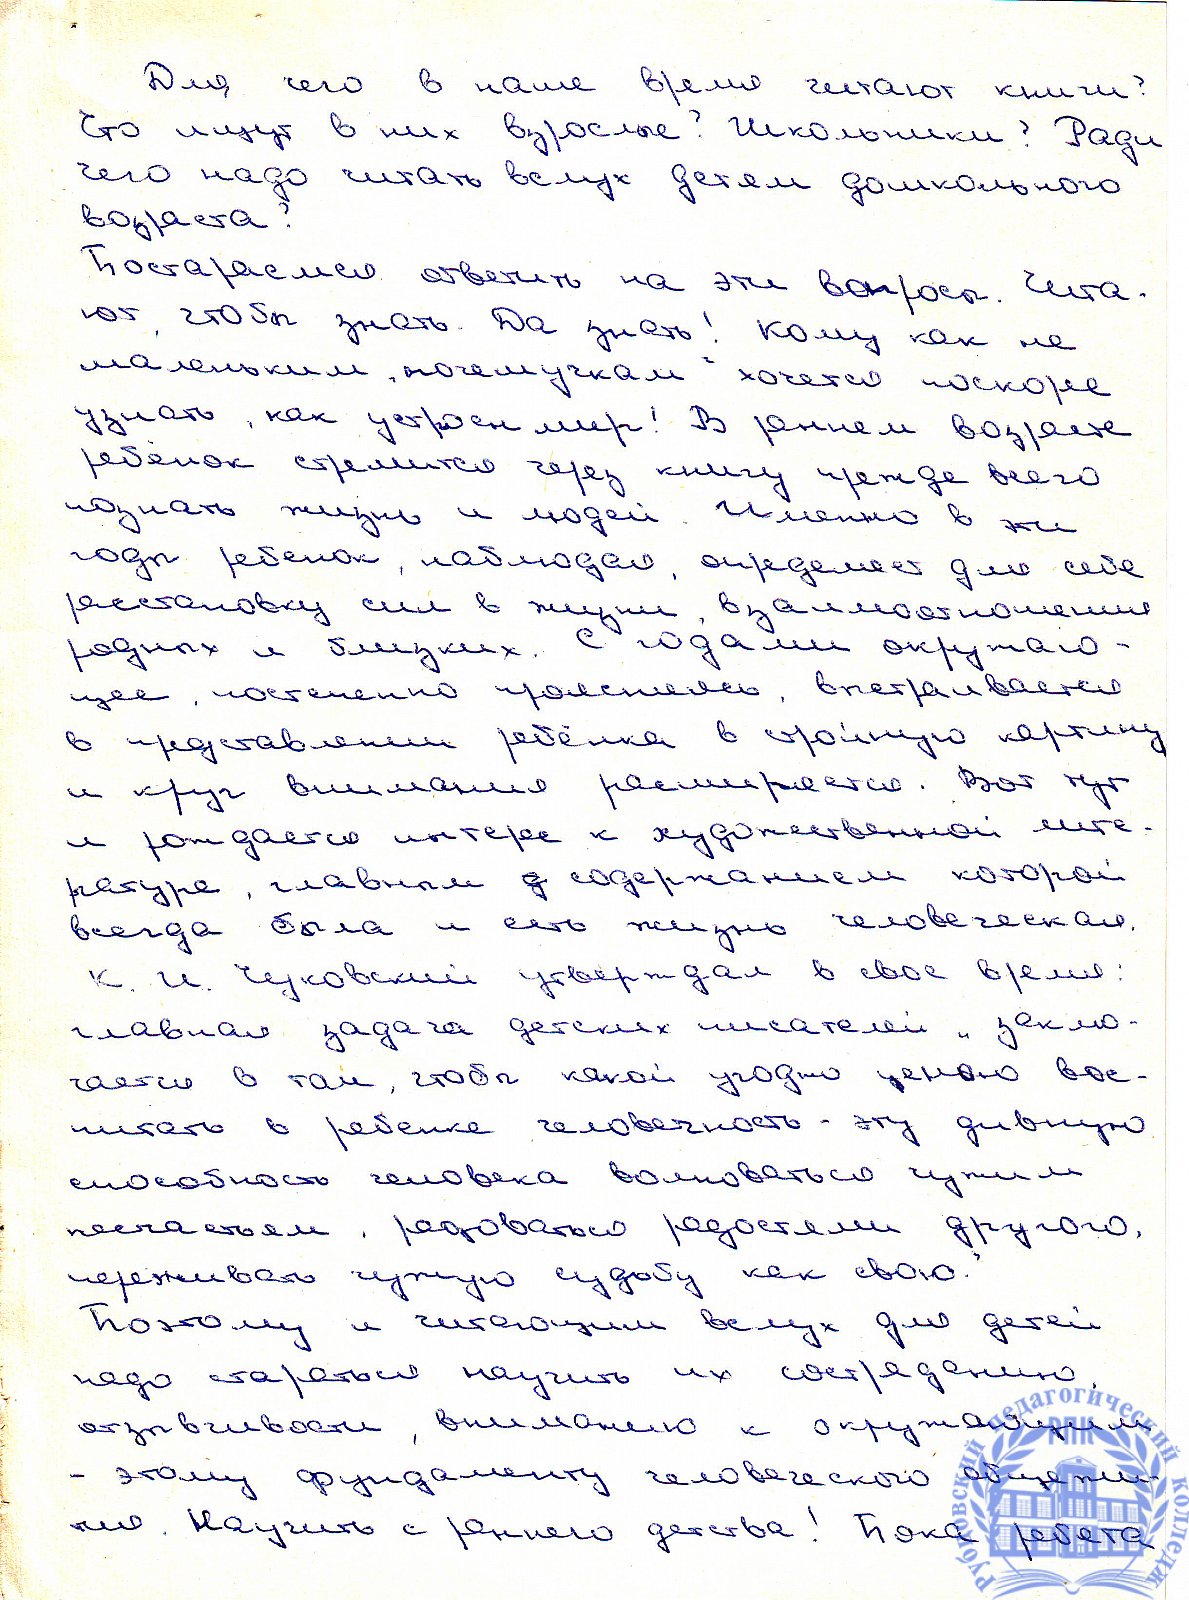 Для чего в наше время читают книги?
Что ищут в них взрослые? Школьники? Ради
чего надо читать вслух детям дошкольного
возраста?
Постараемся ответить на эти вопросы. Чита-
ют, чтобы знать. Да знать! Кому как не
маленьким „почемучкам" хочется поскорее
узнать, как устроен мир! В раннем возрасте
ребёнок стремится через книгу прежде всего
познать жизнь и людей. Именно в эти
годы ребенок, наблюдая, определяет для себя
расстановку сил в жизни, взаимоотношения
родных и близких. С годами окружаю-
щее, постепенно проясняясь, выстраивается
в представлении ребёнка в стройную картину
и круг внимания расширяется. Вот тут
и рождается интерес к художественной лите-
ратуре, главным содержанием которой
всегда была и есть жизнь человеческая.
К. И. Чуковский утверждал в свое время:
главная задача детских писателей „заклю-
чается в том, чтобы какой угодно ценою вос-
питать в ребенке человечность - эту дивную
способность человека волноваться чужим
несчастьем, радоваться радостями другого,
переживать чужую судьбу как свою."
Поэтому и читающим вслух для детей
надо стараться научить их состраданию,
отзывчивости, вниманию к окружающим
- этому фундаменту человеческого общежи-
тия. Научить с раннего детства! Пока ребята
Рубцовский педагогический колледж
РПК